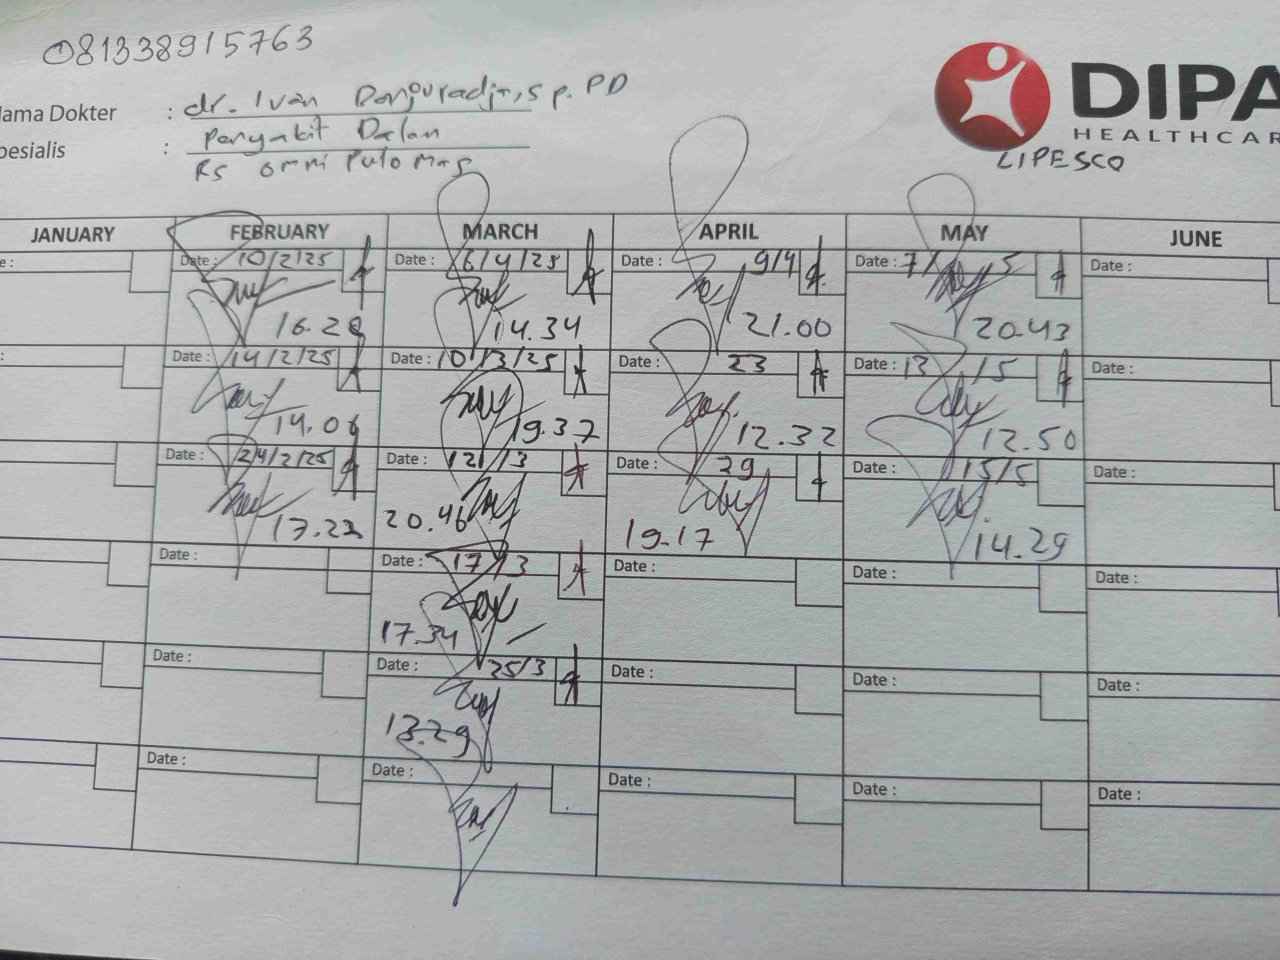 081338915763
DIPA
HEALTHCAR
LIPESCO
ama Dokter : dr. Ivan
sp. PD
pesialis : Penyakit Dalam
RS omni Pulo Mas
JANUARY FEBRUARY MARCH APRIL MAY JUNE
e: Date: 10/2/25 Date: 6/4/25 Date: 9/4 Date: 7/5 Date:
16.28 14.34 21.00 20.43
: Date: 14/2/25 Date: 10/3/25 Date: 23 Date: 13/5 Date:
14.06 19.37 12.32 12.50
Date: 24/2/25 Date: 12/3 Date: 29 Date: 15/5 Date:
13.23 20.46 19.17 14.29
Date: Date: 17/3 Date: Date: Date:
17.34
Date: Date: 25/3 Date: Date: Date:
13.29
Date: Date: Date: Date: Date: